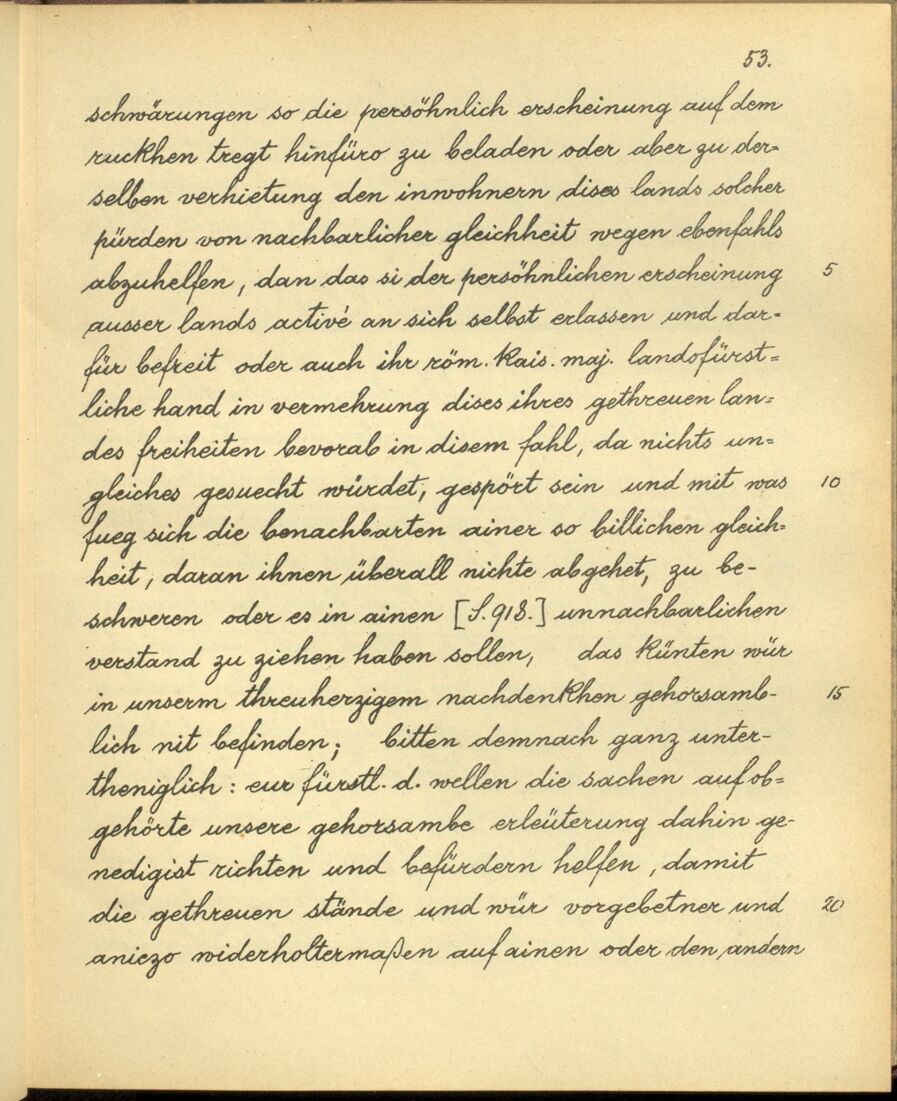 53.
schwärungen so die persöhnlich erscheinung auf dem
ruckhen tregt hinfüro zu beladen oder aber zu der-
selben verhietung den inwohnern dises lands solcher
pürden von nachbarlicher gleichheit wegen ebenfahls
abzuhelfen, dan das si der persöhnlichen erscheinung 5
ausser lands activé an sich selbst erlassen und dar-
für befreit oder auch ihr röm. Kais. maj. landsfürst=
liche hand in vermehrung dises ihres gethreuen lan=
des freiheiten bevorab in disem fahl, da nichts un=
gleiches gesuecht würdet, gespört sein und mit was 10
fueg sich die benachbarten ainer so billichen gleich=
heit, daran ihnen überall nichts abgehet, zu be-
schweren oder es in ainen [S. 918.] unnachbarlichen
verstand zu ziehen haben sollen, das künten wür
in unserm threuherzigem nachdenkhen gehorsamb- 15
lich nit befinden; bitten demnach ganz unter-
theniglich: eur fürstl. d. wellen die sachen auf ob=
gehörte unsere gehorsambe erleüterung dahin ge-
nedigist richten und befürdern helfen, damit
die gethreuen stände und wür vorgebetner und 20
aniezo widerholtermaßen auf ainen oder den andern